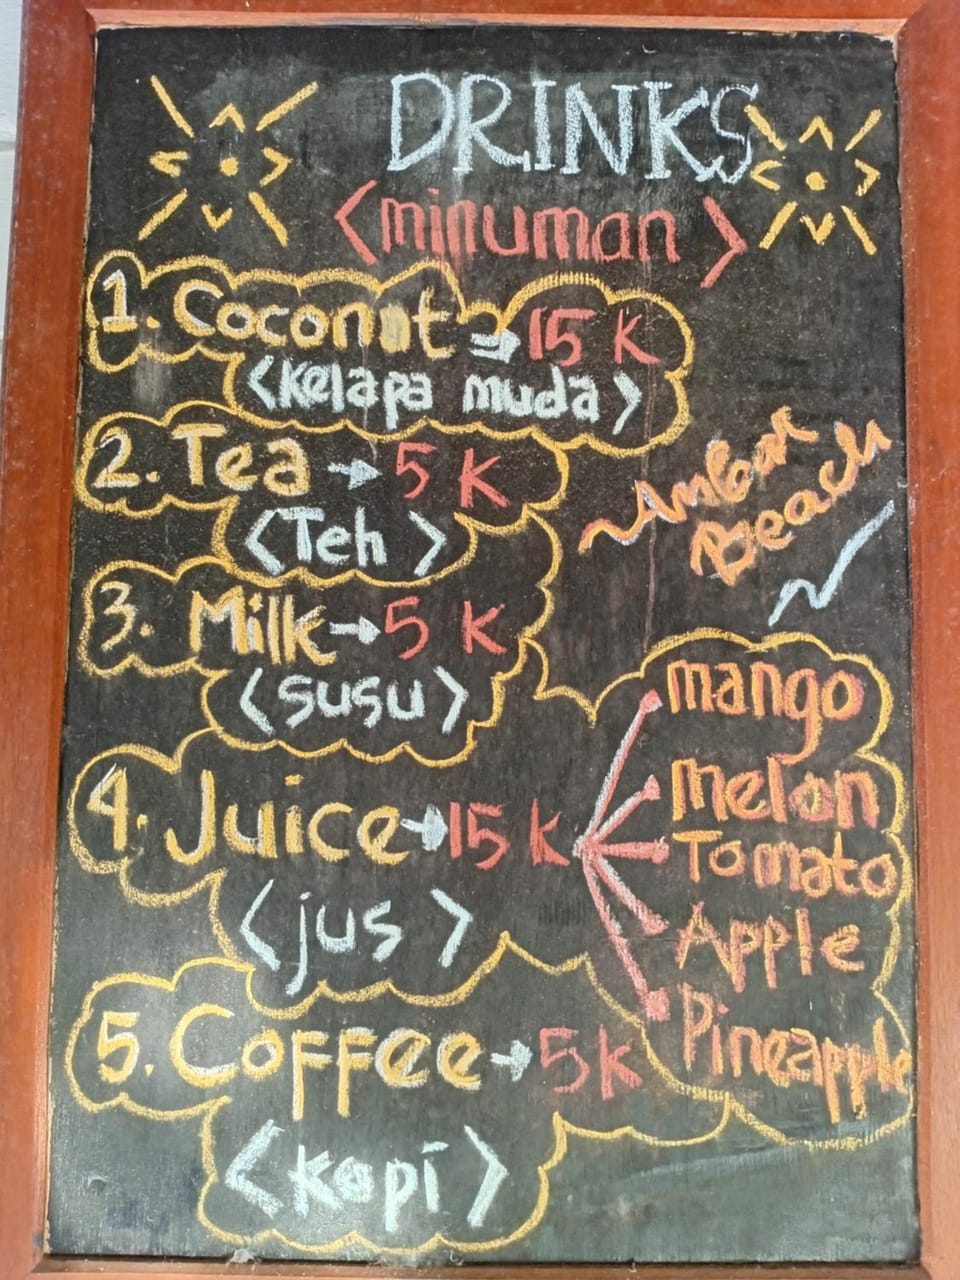 DRINKS
<minuman>
1. Coconut → 15 K
<kelapa muda>
2. Tea → 5 K
<Teh>
Beach
3. Milk → 5 K
<susu>
4. Juice → 15 K
<jus>
mango
melon
Tomato
Apple
Pineapple
5. Coffee → 5 K
<kopi>